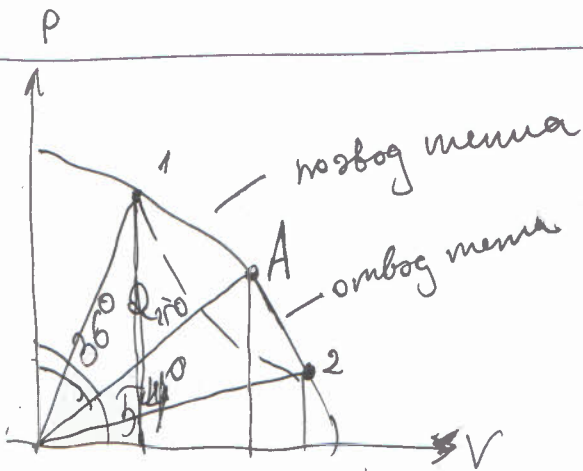 P
1
подвод тепла
A
отвод тепла
36°
2
54°
V